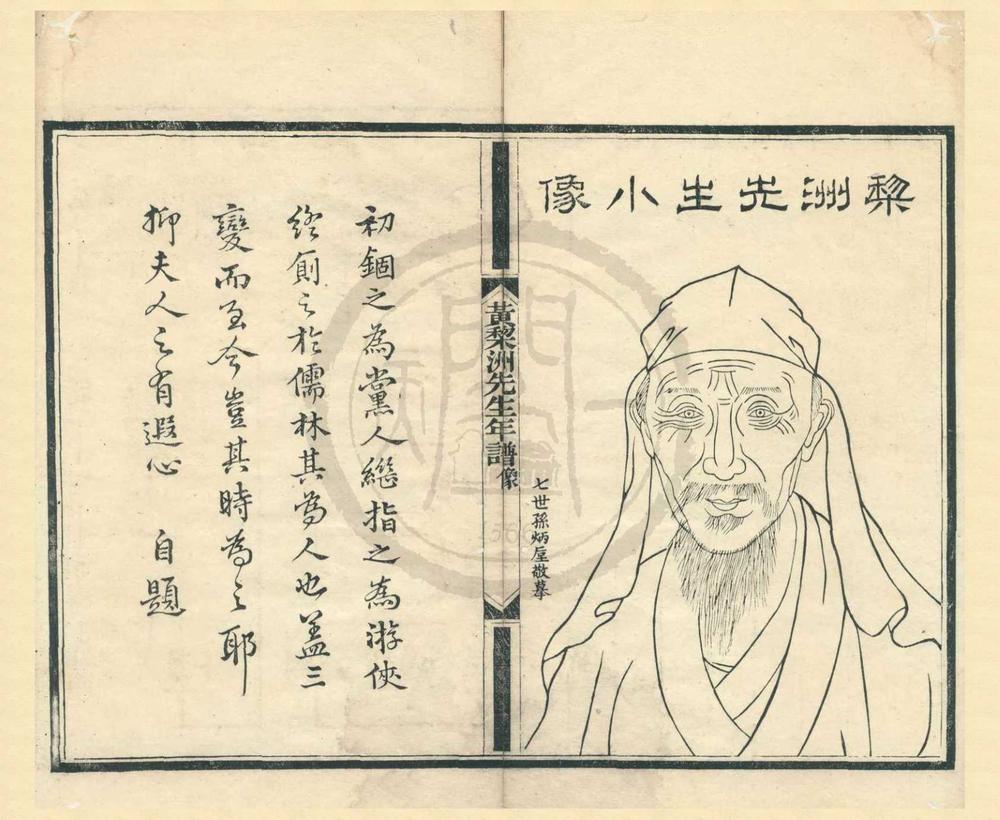 棃洲先生小像
七世孫炳垕敬摹
黃棃洲先生年譜 像
初錮之為黨人繼指之為游俠
終厠之於儒林其為人也蓋三
變而至今豈其時為之耶
抑夫人之有遐心 自題